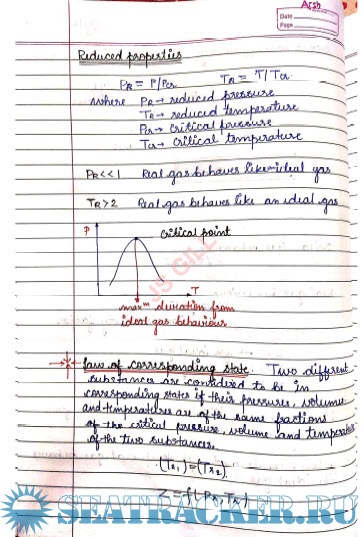 Arsh
Date
Page
Reduced properties
PR = P/Pcr TR = T/Tcr
where PR → reduced pressure
TR → reduced temperature
Pcr → Critical pressure
Tcr → Critical temperature
PR<<1 Real gas behaves like ideal gas
TR>2 Real gas behaves like an ideal gas
P
Critical point
T
maxm deviation from
ideal gas behaviour
JS GILL
Law of corresponding state. Two different
substances are considered to be in
corresponding states if their pressures, volumes
and temperatures are of the same fractions
of the critical pressure, volume and temperature
of the two substances.
(Tr1) = (Tr2)
Z = f (PR, TR)
SEATRACKER.RU